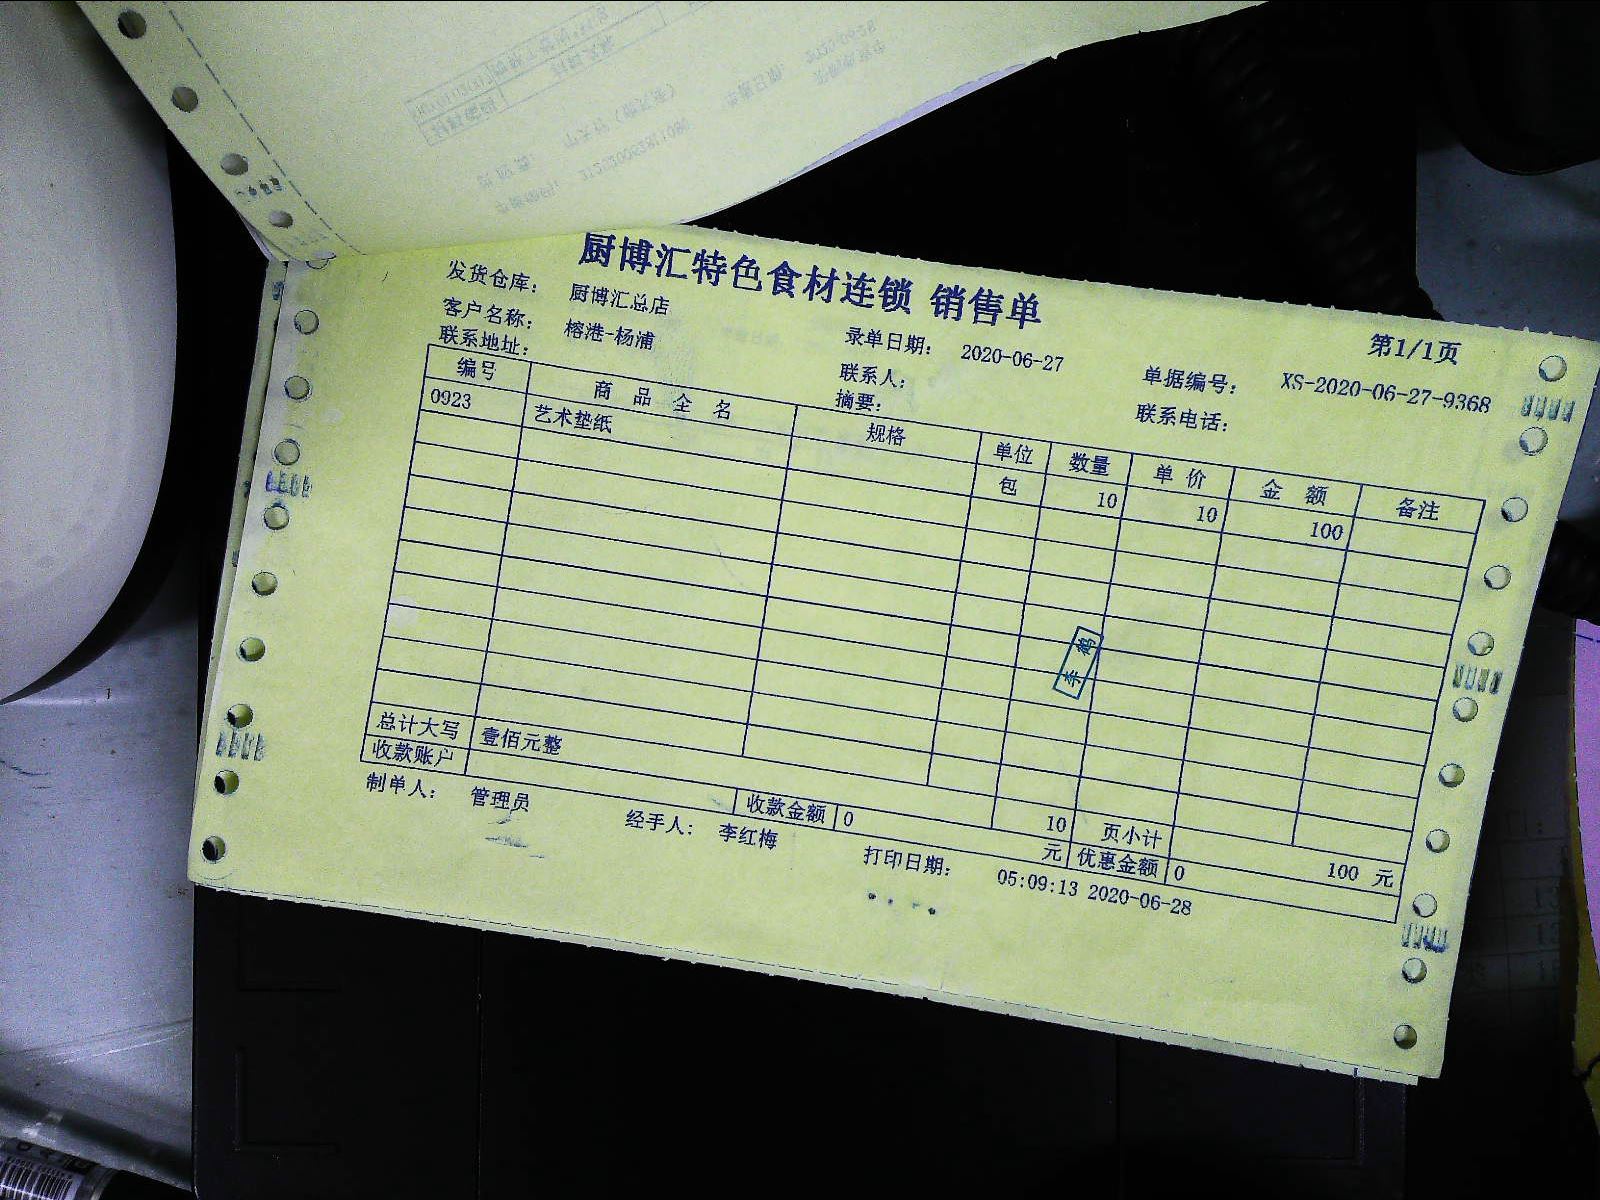 厨博汇特色食材连锁 销售单
第1/1页
发货仓库： 厨博汇总店 录单日期： 2020-06-27 单据编号： XS-2020-06-27-9368
客户名称： 榕港-杨浦 联系人： 联系电话：
联系地址： 摘要：
编号 商品全名 规格 单位 数量 单价 金额 备注
0923 艺术垫纸 包 10 10 100
总计大写 壹佰元整 10 页小计 100 元
收款账户 收款金额 0 元 优惠金额 0
制单人： 管理员 经手人： 李红梅 打印日期： 05:09:13 2020-06-28